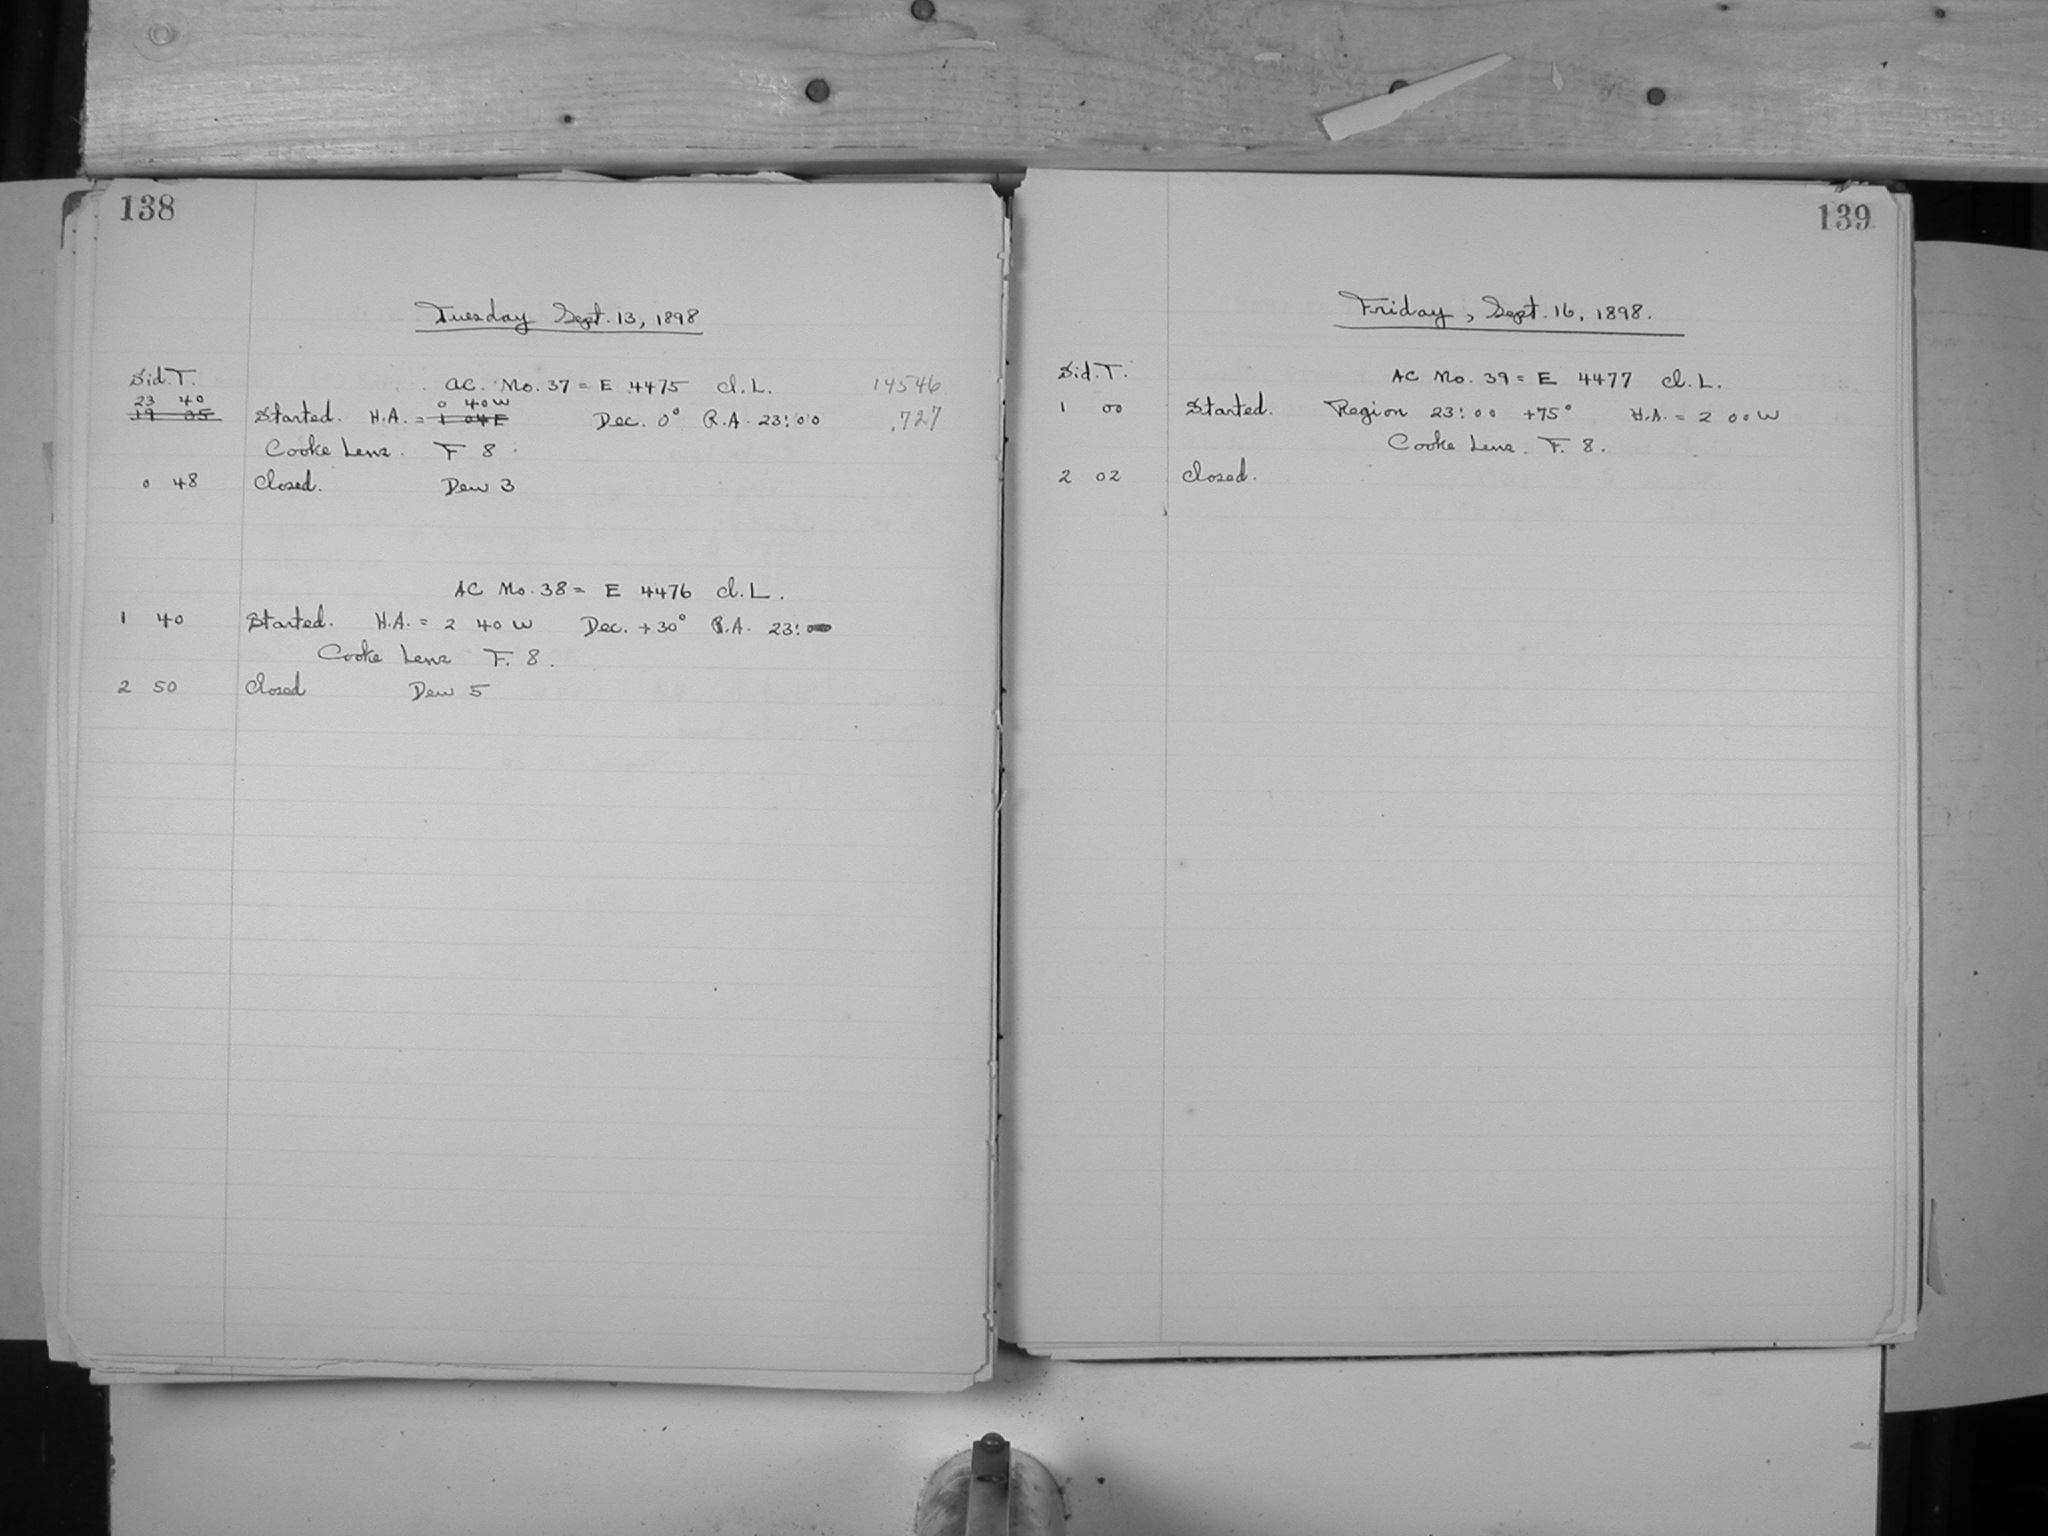 138
Tuesday Sept. 13, 1898
Sid. T. AC. No. 37 = E 4475 Cl. L. 14546
23 40 0 40 W
19 05 Started. H.A. = 1 04 E Dec. 0° R.A. 23:00 .727
Cooke Lens. F 8.
0 48 Closed. Dew 3
AC No. 38 = E 4476 Cl. L.
1 40 Started. H.A. = 2 40 W Dec. +30° R.A. 23:00
Cooke Lens F. 8.
2 50 Closed Dew 5
139
Friday, Sept. 16, 1898.
Sid. T. AC No. 39 = E 4477 Cl. L.
1 00 Started. Region 23:00 +75° H.A. = 2 00 W
Cooke Lens. F. 8.
2 02 Closed.